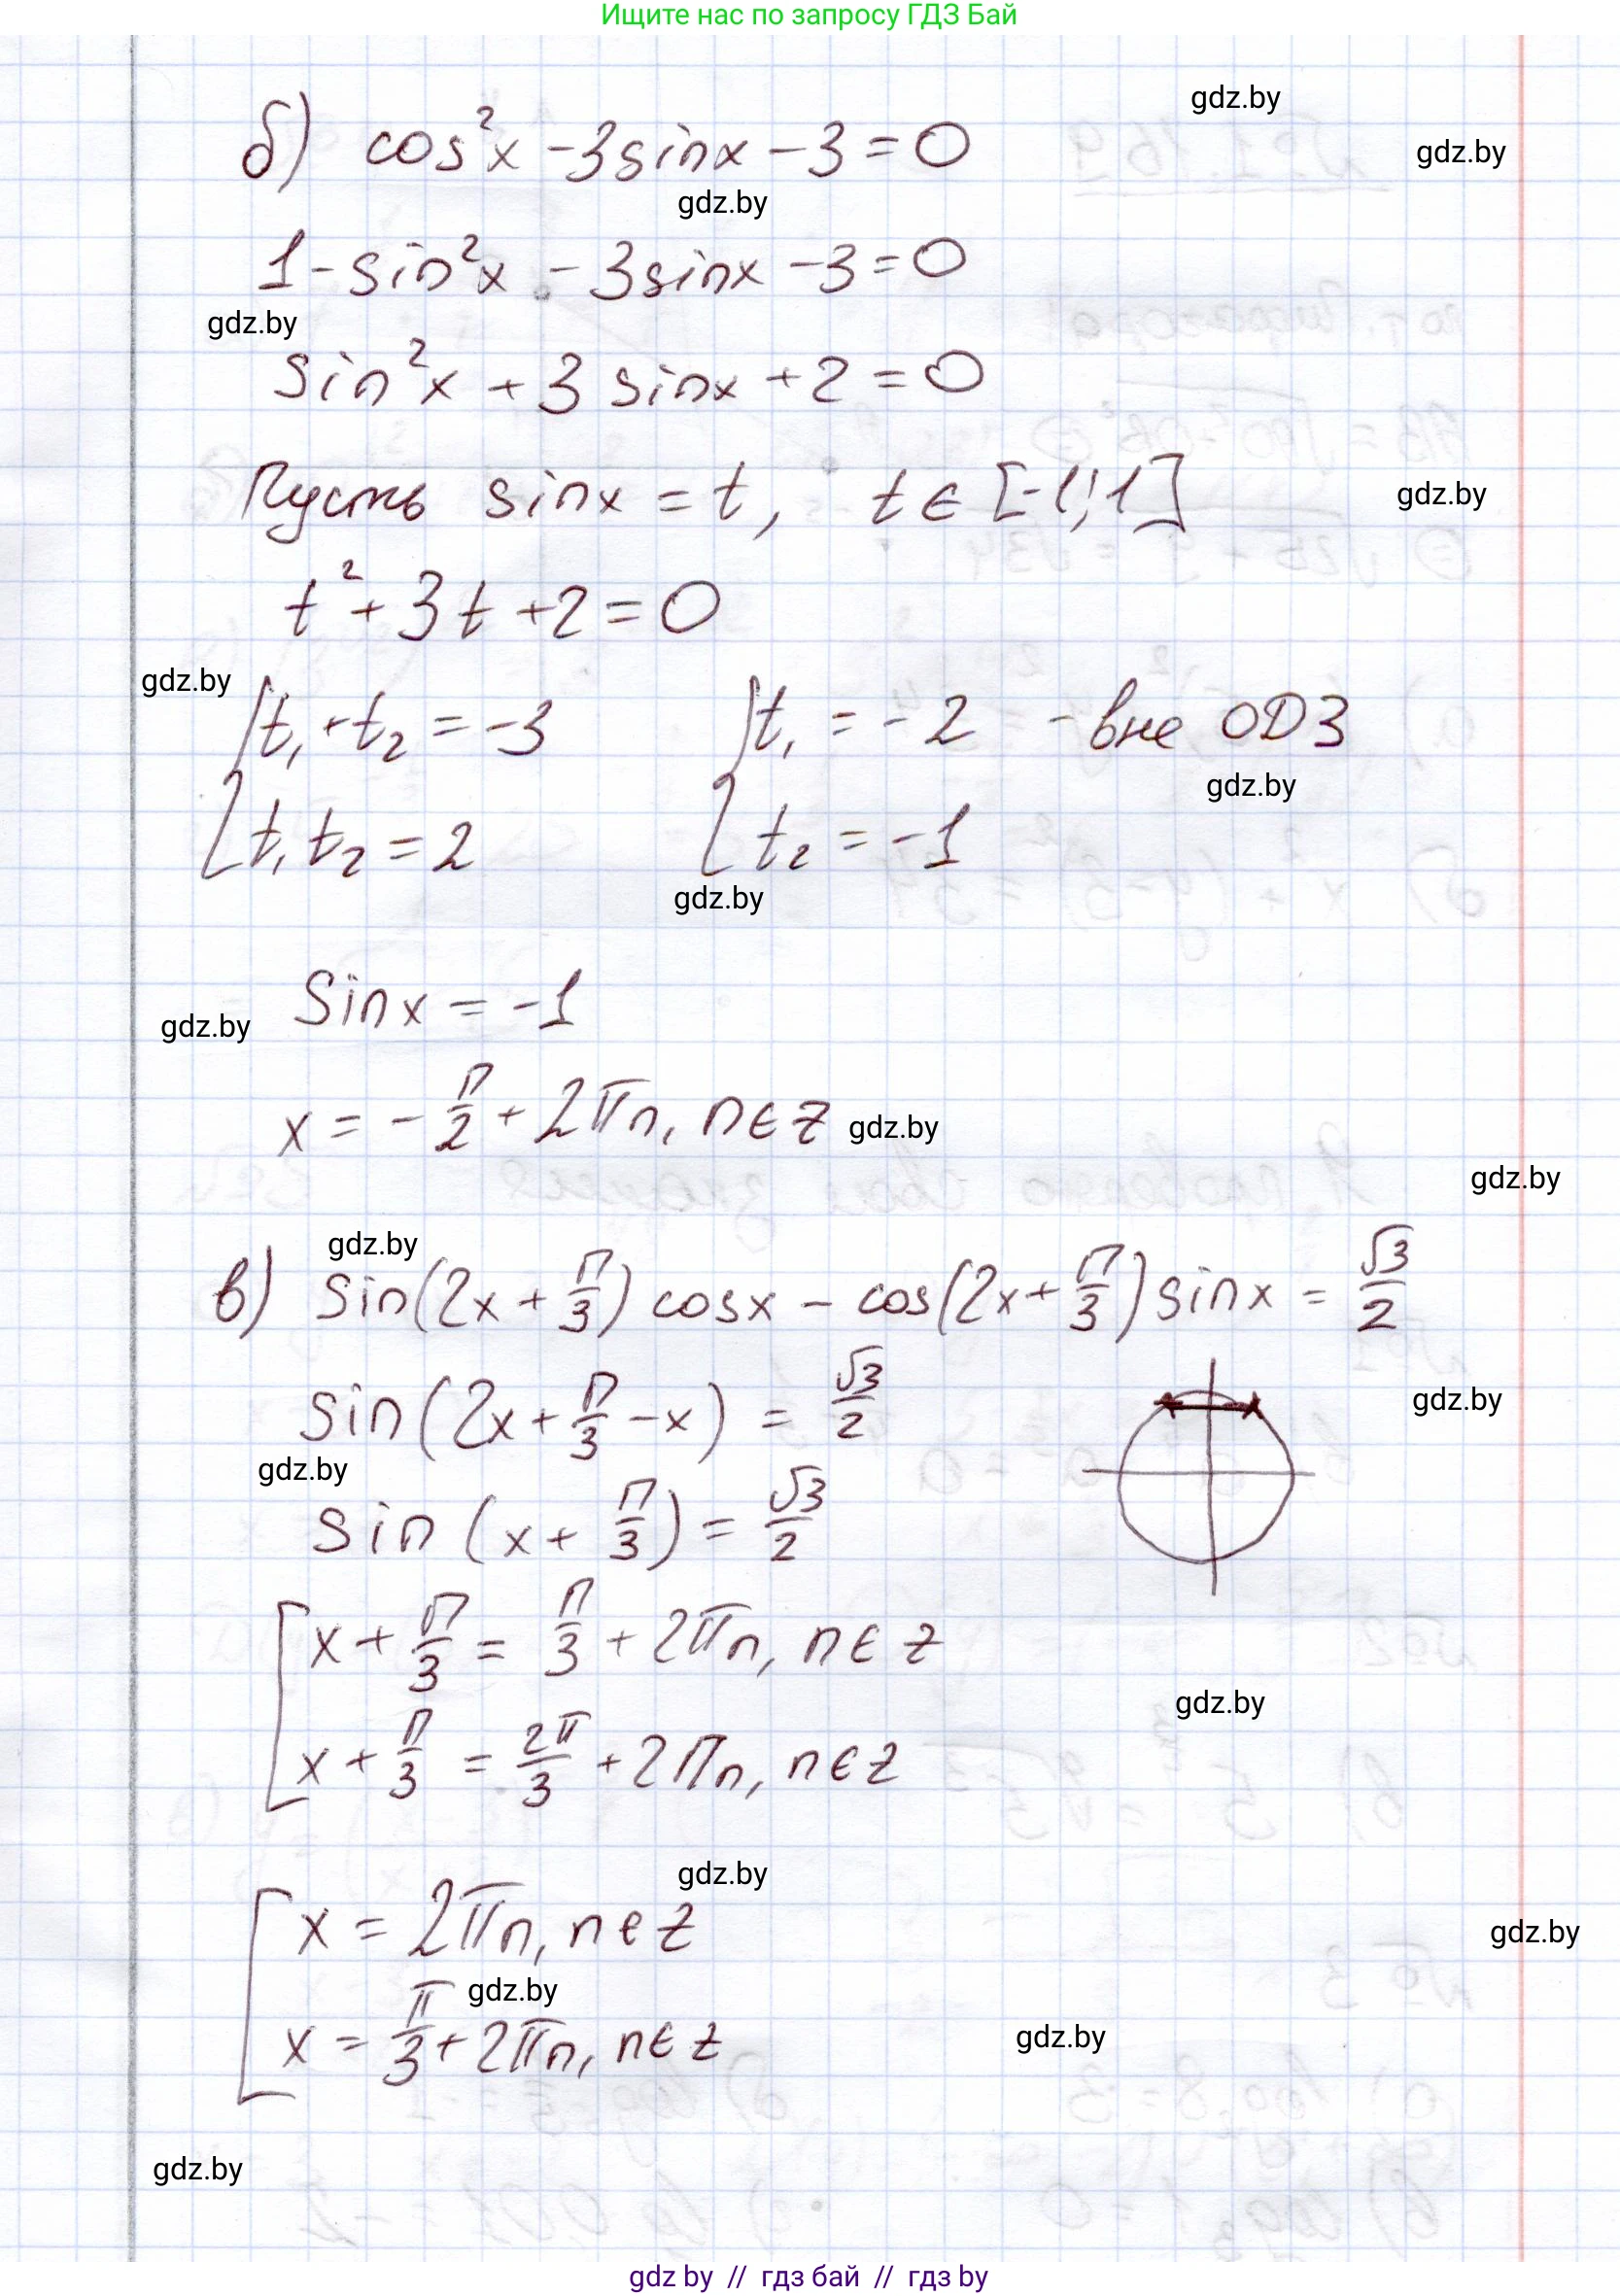 Ищите нас по запросу ГДЗ Бай
gdz.by
б) cos²x - 3sinx - 3 = 0
gdz.by
gdz.by
1 - sin²x - 3sinx - 3 = 0
gdz.by
sin²x + 3 sinx + 2 = 0
Пусть sinx = t, t ∈ [-1; 1]
gdz.by
t² + 3t + 2 = 0
gdz.by
t₁ + t₂ = -3 t₁ = -2 - вне ОДЗ
gdz.by
t₁ t₂ = 2 t₂ = -1
gdz.by
Sinx = -1
gdz.by
x = - π/2 + 2πn, n ∈ z
gdz.by
gdz.by
gdz.by
в) sin(2x + π/3) cosx - cos(2x + π/3) sinx = √3/2
sin(2x + π/3 - x) = √3/2
gdz.by
gdz.by
sin (x + π/3) = √3/2
x + π/3 = π/3 + 2πn, n ∈ z
gdz.by
x + π/3 = 2π/3 + 2πn, n ∈ z
gdz.by
x = 2πn, n ∈ z
gdz.by
gdz.by
x = π/3 + 2πn, n ∈ z
gdz.by
gdz.by
gdz by // гдз бай // гдз by